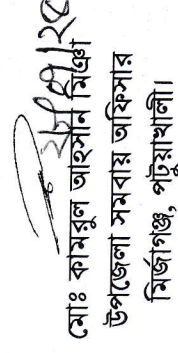 ২৮/৭/২৫
মোঃ কামরুল আহসান মিঞা
উপজেলা সমবায় অফিসার
মির্জাগঞ্জ, পটুয়াখালী।